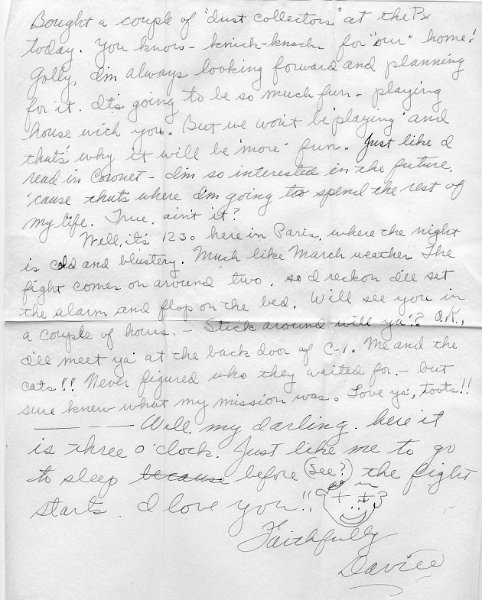 Bought a couple of "dust collectors" at the Px
today. You know - knick-knacks for "our" home!
Golly, I'm always looking forward and planning
for it. It's going to be so much fun - playing
house with you. But we won't be "playing" and
that's why it will be "more" fun. Just like I
read in Coronet - I'm so interested in the future,
'cause that's where I'm going to spend the rest of
my life. True, ain't it?
Well, it's 1230 here in Paris, where the night
is cold and blustery. Much like March weather. The
fight comes on around two, so I reckon I'll set
the alarm and flop on the bed. Will see you in
a couple of hours. - Stick around will ya'? O.K.,
I'll meet ya' at the back door of C-1. Me and the
cats!! Never figured who they waited for - but
sure knew what my mission was. Love ya', toots!!
- - - - Well, my darling, here it
is three o'clock. Just like me to go
to sleep because before (see?) the fight
starts. I love you!!
Faithfully